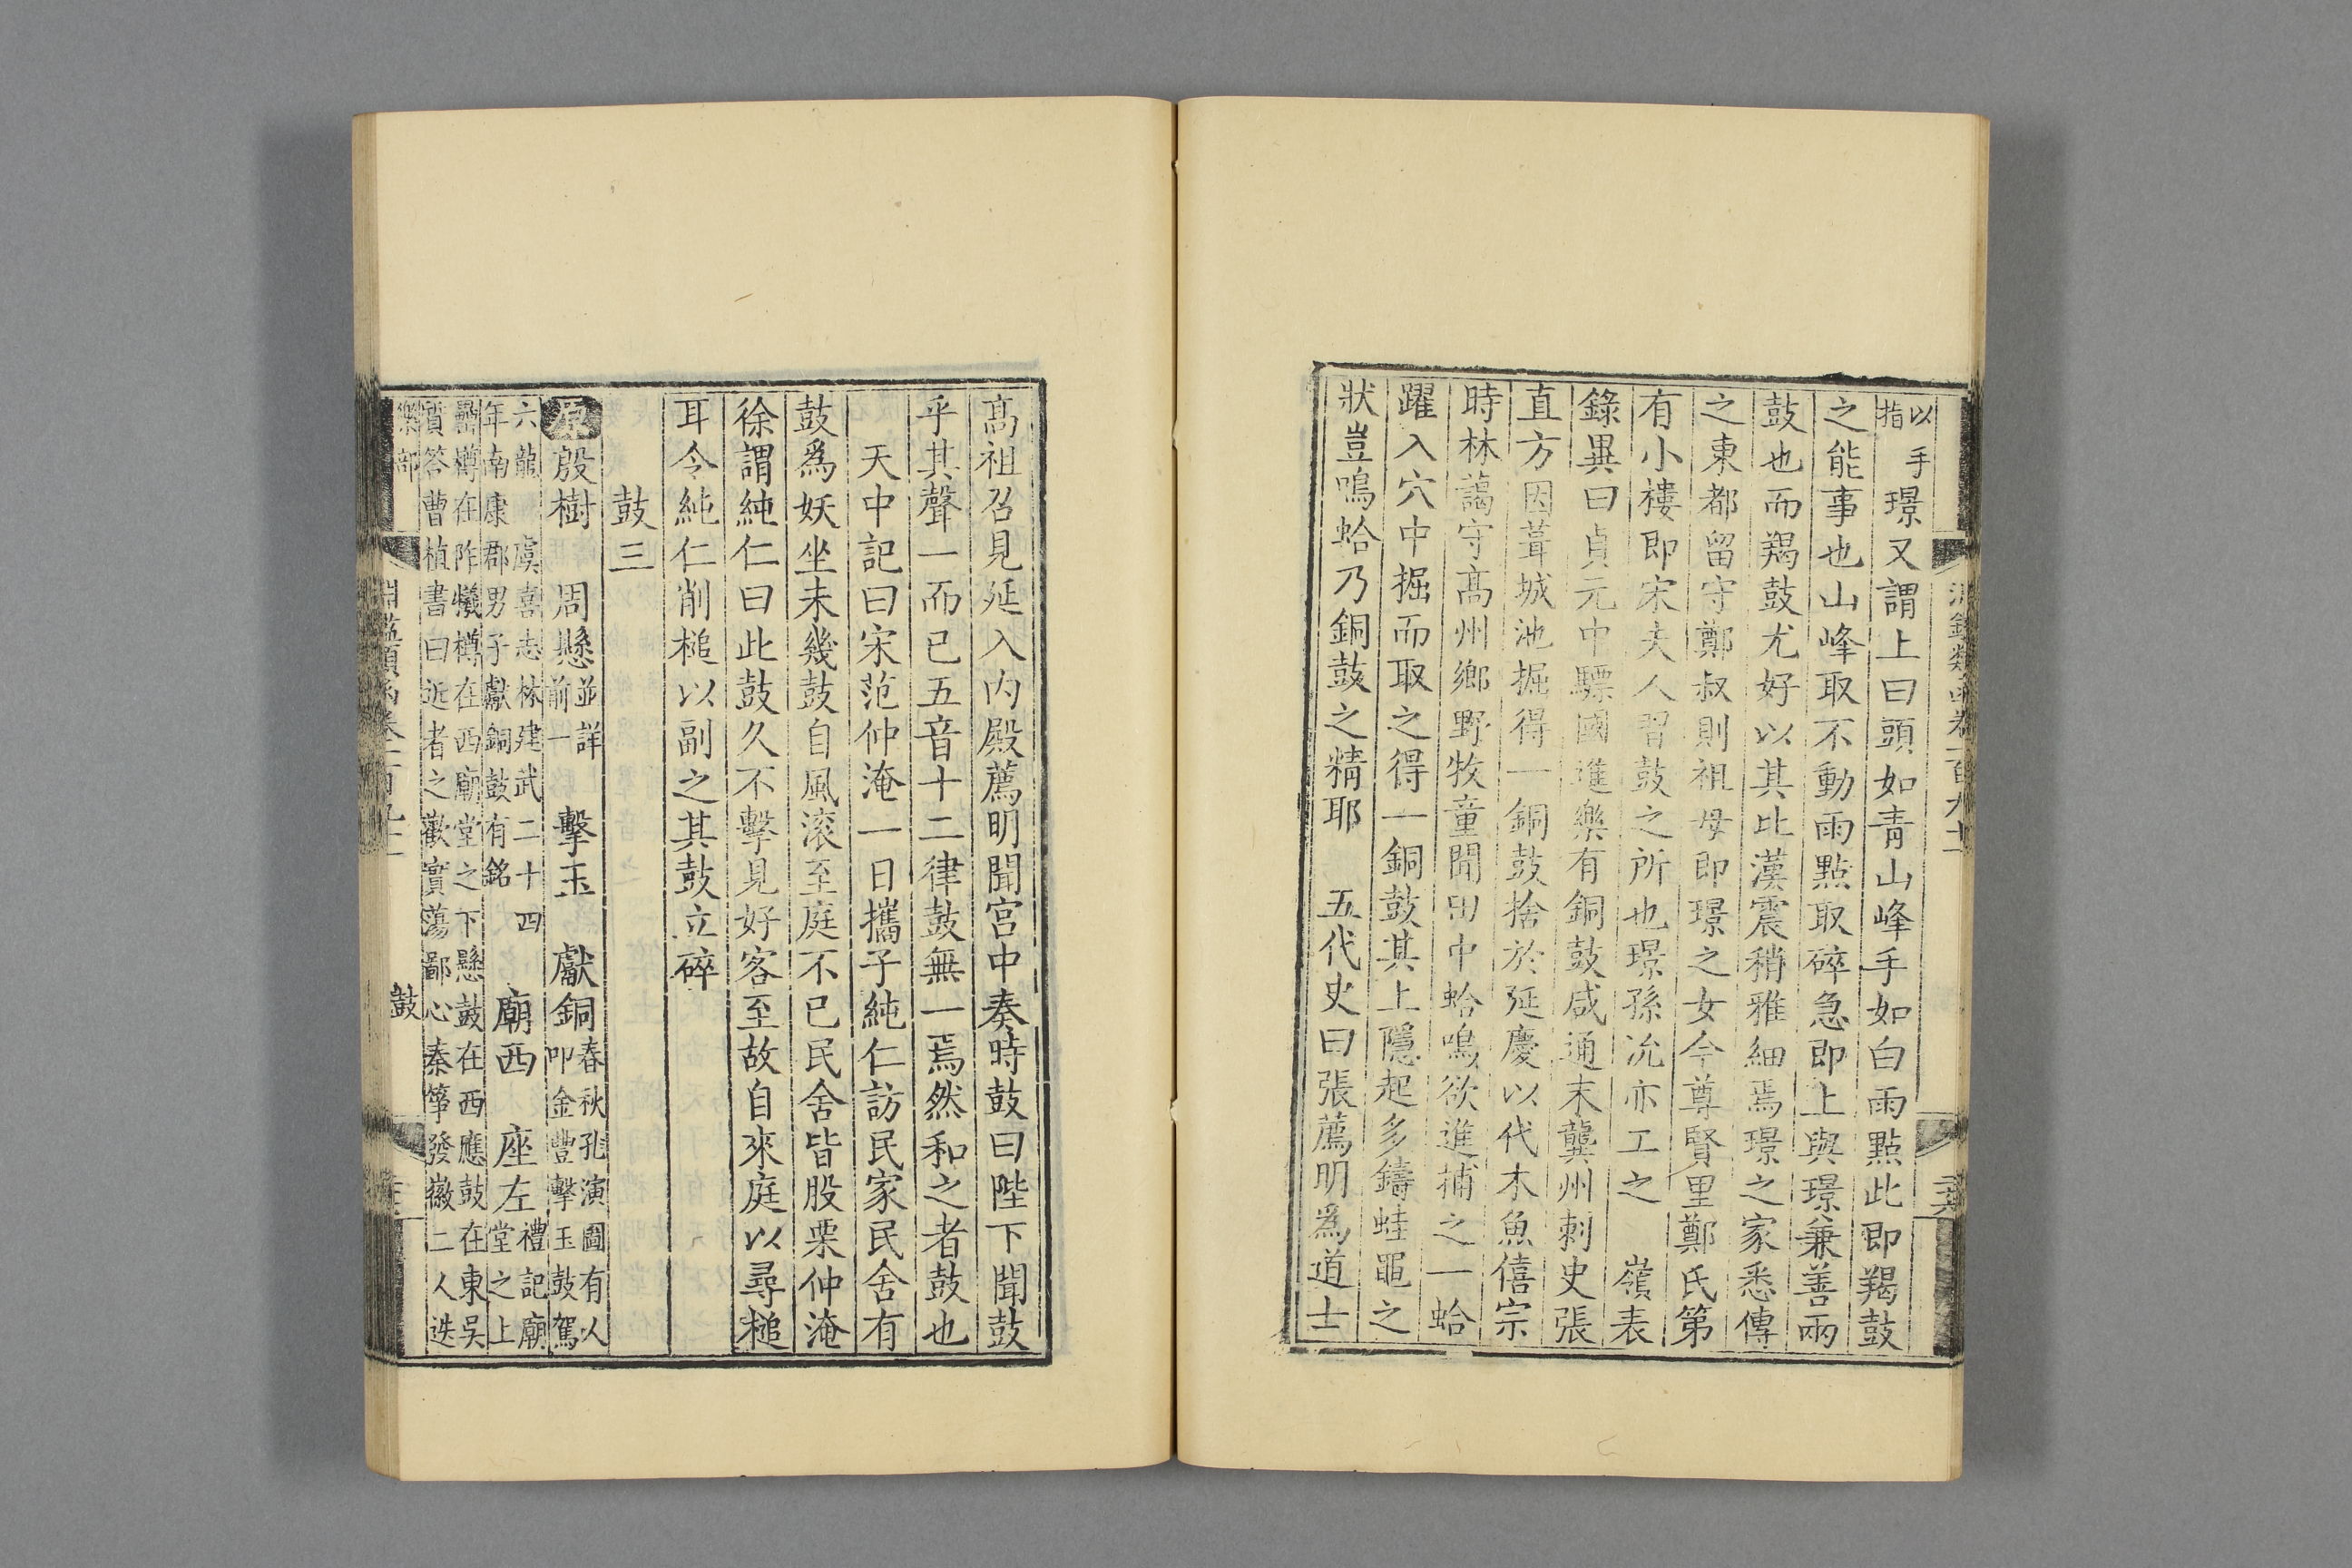 以手
指
璟又謂上曰頭如青山峰手如白雨點此即羯鼓
之能事也山峰取不動雨點取碎急即上與璟兼善兩
鼓也而羯鼓尤好以其比漢震稍雅細焉璟之家悉傳
之東都留守鄭叔則祖母即璟之女今尊賢里鄭氏第
有小樓即宋夫人習鼓之所也璟孫沇亦工之　嶺表
錄異曰貞元中驃國進樂有銅鼓咸通末龔州刺史張
直方因葺城池掘得一銅鼓捨於延慶以代木魚僖宗
時林藹守高州鄉野牧童聞田中蛤鳴欲進捕之一蛤
躍入穴中掘而取之得一銅鼓其上隱起多鑄蛙黽之
狀豈鳴蛤乃銅鼓之精耶　五代史曰張薦明爲道士
高祖召見延入內殿薦明聞宮中奏時鼓曰陛下聞鼓
乎其聲一而已五音十二律鼓無一焉然和之者鼓也
天中記曰宋范仲淹一日攜子純仁訪民家民舍有
鼓爲妖坐未幾鼓自風滚至庭不已民舍皆股栗仲淹
徐謂純仁曰此鼓久不擊見好客至故自來庭以尋槌
耳令純仁削槌以副之其鼓立碎
鼓三
原殷樹　周懸並詳前一　擊玉　獻銅春秋孔演圖有人叩金豐擊玉鼓駕
六龍　虞喜志林建武二十四年南康郡男子獻銅鼓有銘　廟西　座左禮記廟堂之上
罍樽在阼犧樽在西廟堂之下懸鼓在西應鼓在東吳
質答曹植書曰近者之歡實蕩鄙心秦箏發徽二人迭
樂部　鼓
淵鑑類函卷一百九十